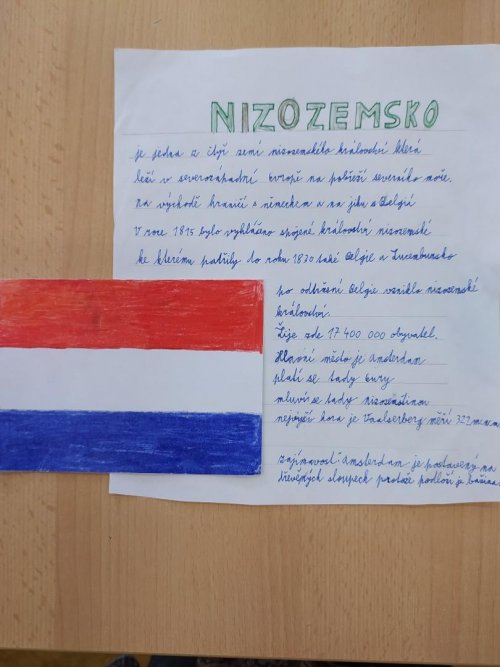 NIZOZEMSKO
je jedna z čtyř zemí nizozemského království která
leží v severozápadní Evropě na pobřeží severního moře.
na východě hraničí s německem a na jihu s Belgií
V roce 1815 bylo vyhlášeno spojené království nizozemské
ke kterému patřily do roku 1830 také Belgie a Lucembursko
po odtržení Belgie vzniklo nizozemské
království.
Žije zde 17 400 000 obyvatel.
Hlavní město je Amsterdam
platí se tady eury
mluví se tady nizozemštinou
nejvyšší hora je Vaalserberg měří 322
zajímavost: Amsterdam je postavený na
dřevěných sloupech protože podloží je bažina